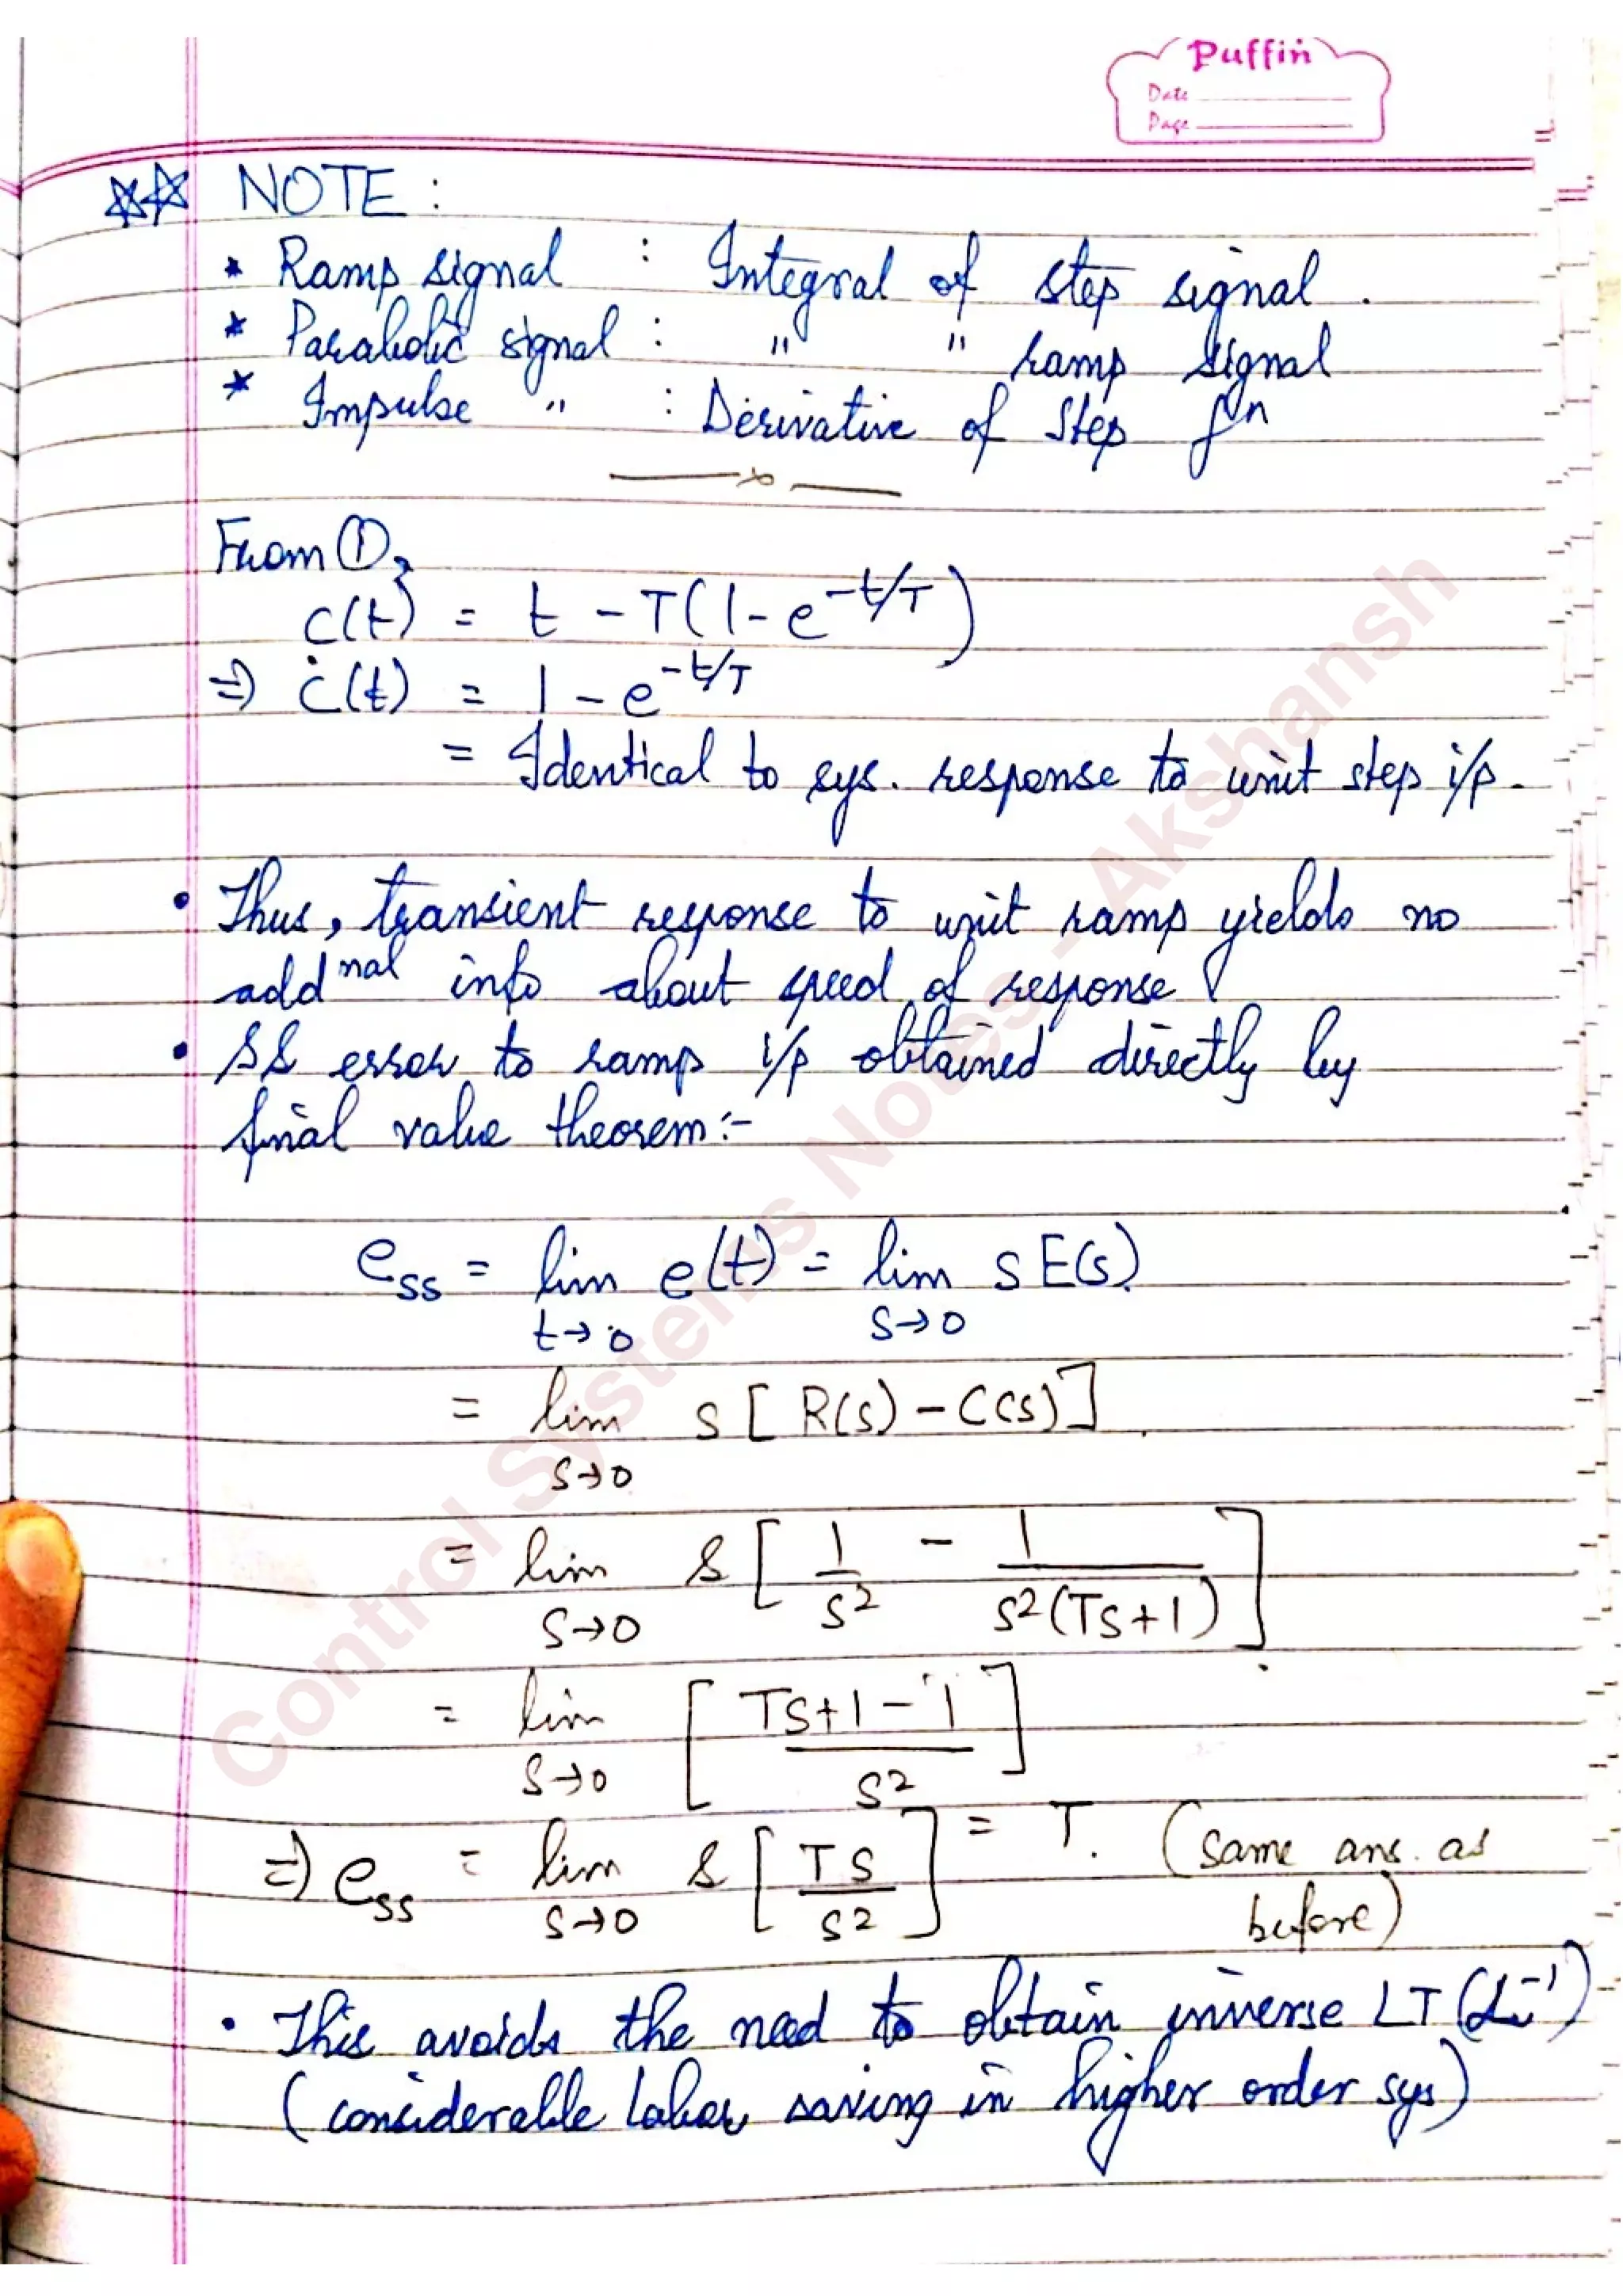 Puffin
Date
Page
☆☆ NOTE :
* Ramp signal : Integral of step signal.
* Parabolic signal : " " ramp signal
* Impulse " : Derivative of step fⁿ
—x—
From ①,
c(t) = t - T(1 - e^{-t/T})
⇒ ċ(t) = 1 - e^{-t/T}
= Identical to sys. response to unit step i/p.
• Thus, transient response to unit ramp yields no
add^{nal} info about speed of response
• SS error to ramp i/p obtained directly by
final value theorem :-
e_{ss} = lim_{t→0} e(t) = lim_{s→0} s E(s)
= lim_{s→0} s [ R(s) - C(s) ]
= lim_{s→0} s [ 1/s² - 1/(s²(Ts+1)) ]
= lim_{s→0} [ (Ts+1-1)/s² ]
⇒ e_{ss} = lim_{s→0} s [ Ts/s² ] = T. (same ans. as
before)
• This avoids the need to obtain inverse LT (L⁻¹)
(considerable labor saving in higher order sys)
Control Systems Notes - Akshansh